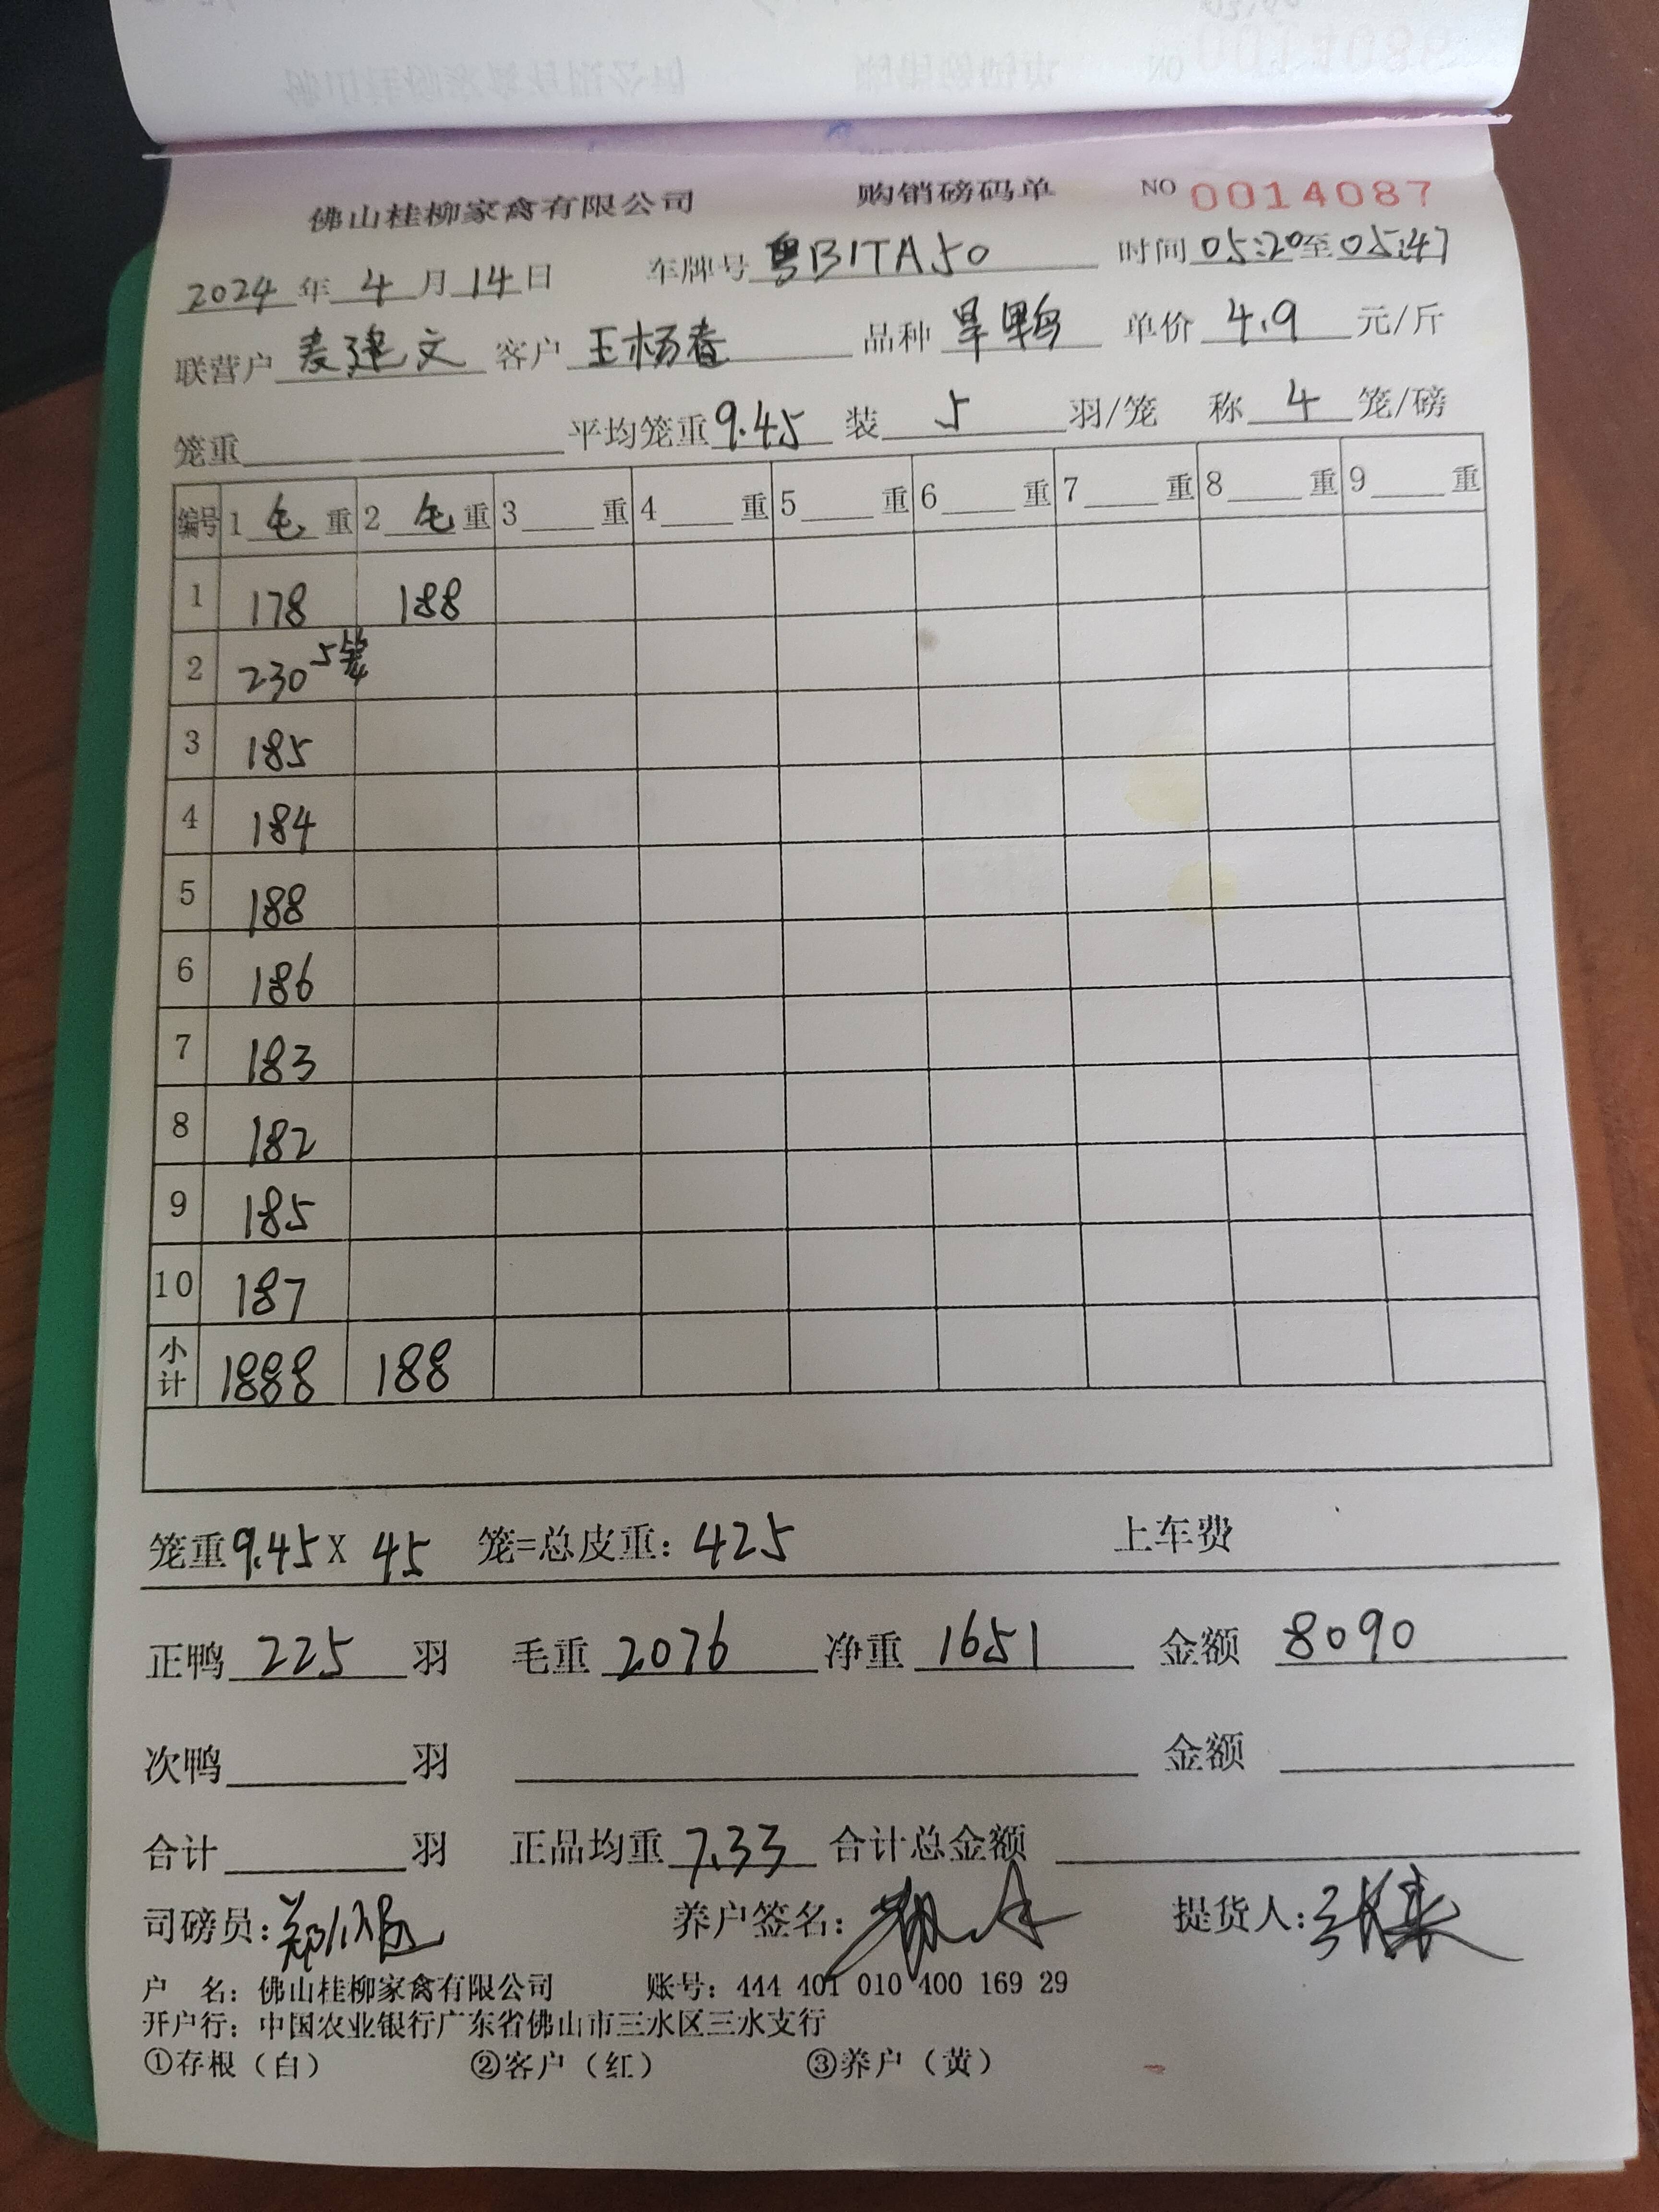 佛山桂柳家禽有限公司 购销磅码单 NO 0014087
2024年4月14日 车牌号 粤B1TA50 时间 05:20至05:47
联营户 麦建文 客户 王杨春 品种 旱鸭 单价 4.9 元/斤
笼重 平均笼重 9.45 装 5 羽/笼 称 4 笼/磅
编号 1 毛 重 2 毛 重 3 重 4 重 5 重 6 重 7 重 8 重 9 重
1 178 188
2 230 5笼
3 185
4 184
5 188
6 186
7 183
8 182
9 185
10 187
小计 1888 188
笼重 9.45 X 45 笼=总皮重: 425 上车费
正鸭 225 羽 毛重 2076 净重 1651 金额 8090
次鸭 羽 金额
合计 羽 正品均重 7.33 合计总金额
司磅员: 养户签名: 提货人:
户 名: 佛山桂柳家禽有限公司 账号: 444 401 010 400 169 29
开户行: 中国农业银行广东省佛山市三水区三水支行
①存根(白) ②客户(红) ③养户(黄)